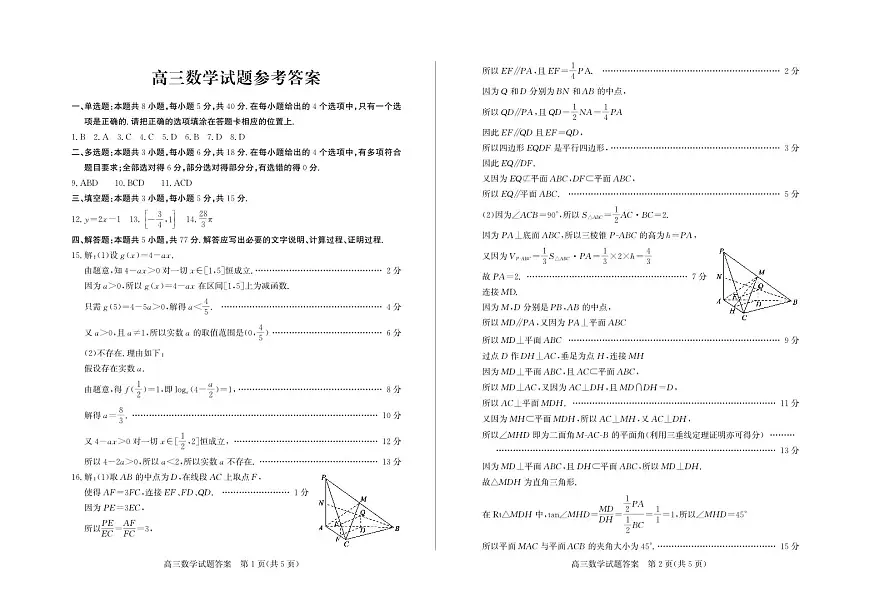 高三数学试题参考答案
一、单选题:本题共8小题,每小题5分,共40分.在每小题给出的4个选项中,只有一个选
项是正确的.请把正确的选项填涂在答题卡相应的位置上.
1.B 2.A 3.C 4.C 5.D 6.B 7.D 8.D
二、多选题:本题共3小题,每小题6分,共18分.在每小题给出的4个选项中,有多项符合
题目要求;全部选对得6分,部分选对得部分分,有选错的得0分.
9.ABD 10.BCD 11.ACD
三、填空题:本题共3小题,每小题5分,共15分.
12.y=2x-1 13.[-3/4,1] 14.28/3 π
四、解答题:本题共5小题,共77分.解答应写出必要的文字说明、计算过程、证明过程.
15.解:(1)设g(x)=4-ax.
由题意,知4-ax>0对一切x∈[1,5]恒成立. …… 2分
因为a>0,所以g(x)=4-ax在区间[1,5]上为减函数.
只需g(5)=4-5a>0,解得a<4/5. …… 4分
又a>0,且a≠1,所以实数a的取值范围是(0,4/5) …… 6分
(2)不存在.理由如下:
假设存在实数a.
由题意,得f(1/2)=1,即logₐ(4-a/2)=1, …… 8分
解得a=8/3. …… 10分
又4-ax>0对一切x∈[1/2,2]恒成立, …… 12分
所以4-2a>0,所以a<2,所以实数a不存在. …… 13分
16.解:(1)取AB的中点为D,在线段AC上取点F,
使得AF=3FC,连接EF、FD、QD. …… 1分
因为PE=3EC,
所以PE/EC=AF/FC=3,
P
N
M
Q
A
E
D
B
F
C
高三数学试题答案 第1页(共5页)
所以EF∥PA,且EF=1/4 PA. …… 2分
因为Q和D分别为BN和AB的中点,
所以QD∥PA,且QD=1/2 NA=1/4 PA
因此EF∥QD且EF=QD,
所以四边形EQDF是平行四边形, …… 3分
因此EQ∥DF.
又因为EQ⊄平面ABC,DF⊂平面ABC,
所以EQ∥平面ABC. …… 5分
(2)因为∠ACB=90°,所以S△ABC=1/2 AC·BC=2.
因为PA⊥底面ABC,所以三棱锥P-ABC的高为h=PA,
又因为V P-ABC=1/3 S△ABC·PA=1/3×2×h=4/3
故PA=2. …… 7分
连接MD.
因为M,D分别是PB,AB的中点,
所以MD∥PA,又因为PA⊥平面ABC
所以MD⊥平面ABC …… 9分
过点D作DH⊥AC,垂足为点H,连接MH
因为MD⊥平面ABC,且AC⊂平面ABC,
所以MD⊥AC,又因为AC⊥DH,且MD∩DH=D,
所以AC⊥平面MDH. …… 11分
又因为MH⊂平面MDH,所以AC⊥MH,又AC⊥DH,
所以∠MHD即为二面角M-AC-B的平面角(利用三垂线定理证明亦可得分) ……
…… 13分
因为MD⊥平面ABC,且DH⊂平面ABC,所以MD⊥DH.
故△MDH为直角三角形.
在Rt△MDH中,tan∠MHD=MD/DH=(1/2 PA)/(1/2 BC)=1/1=1,所以∠MHD=45°
所以平面MAC与平面ACB的夹角大小为45°. …… 15分
P
M
N
Q
A
E
D
B
H
C
高三数学试题答案 第2页(共5页)